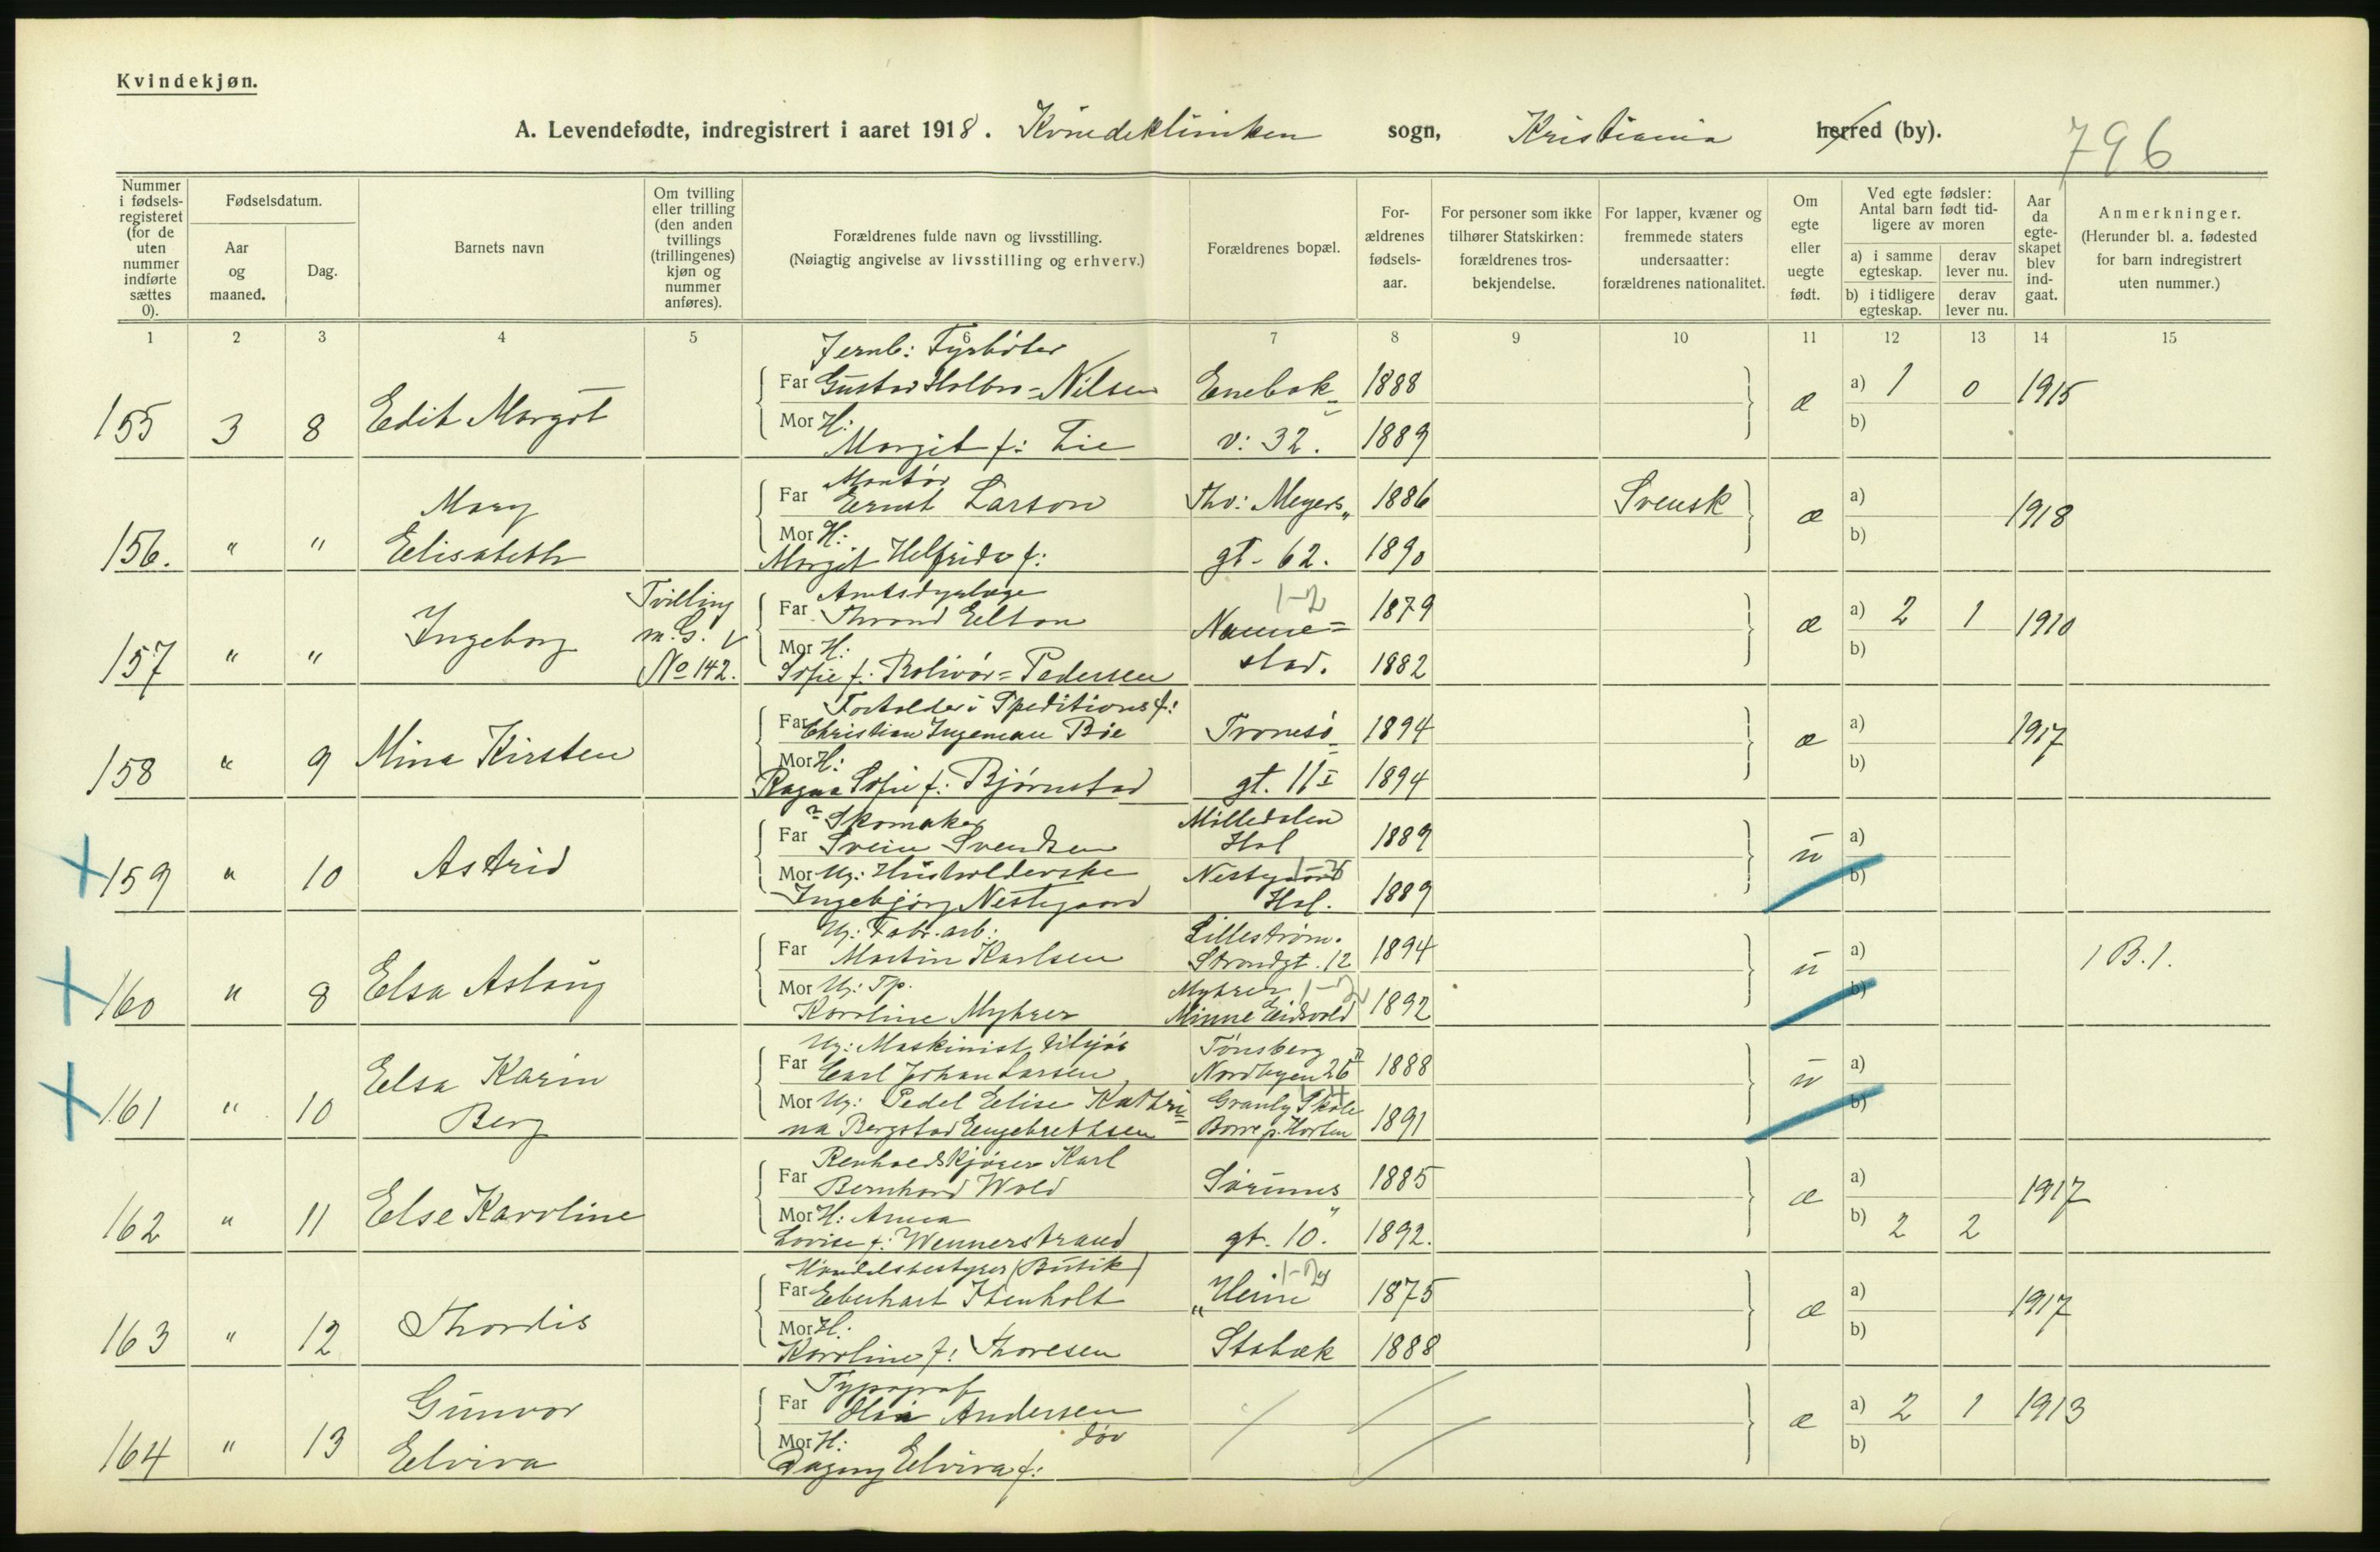 Kvindekjøn.
A. Levendefødte, indregistrert i aaret 1918. Kvindeklinikken sogn, Kristiania herred (by).
796
Nummer i fødsels-registeret (for de uten nummer indførte sættes 0).
Fødselsdatum.
Aar og maaned.
Dag.
Barnets navn
Om tvilling eller trilling (den anden tvillings (trillingenes) kjøn og nummer anføres).
Forældrenes fulde navn og livsstilling.
(Nøiagtig angivelse av livsstilling og erhverv.)
Forældrenes bopæl.
For-ældrenes fødsels-aar.
For personer som ikke tilhører Statskirken: forældrenes tros-bekjendelse.
For lapper, kvæner og fremmede staters undersaatter: forældrenes nationalitet.
Om egte eller uegte født.
Ved egte fødsler: Antal barn født tid-ligere av moren
a) i samme egteskap.
derav lever nu.
b) i tidligere egteskap.
derav lever nu.
Aar da egte-skapet blev ind-gaat.
Anmerkninger.
(Herunder bl. a. fødested for barn indregistrert uten nummer.)
1 2 3 4 5 6 7 8 9 10 11 12 13 14 15
Jernb: Fyrbøter
155 3 8 Edit Margot Far Gustav Holbro=Nilsen Enebak= 1888 æ a) 1 0 1915
Mor H: Margit f: Lie v: 32. 1889 b)
Montør
156. " " Mary Elisabeth Far Ernst Larson Thv: Meyers" 1886 Svensk æ a) 1918
Mor H: Margit Helfrida f: gt. 62. 1890 b)
157 " " Ingeborg Tvilling m. G. V No 142. Far Thrond Elton 1-2 Nanne= 1879 æ a) 2 1 1910
Mor H: Sofie f: Bolivár=Pedersen stad. 1882 b)
Forholder i Speditionsf:
158 " 9 Mina Kirsten Far Christian Ingeman Bøe Tromsø= 1894 æ a) 1917
Mor H: Ragna Sofie f: Bjørnstad gt. 11 I 1894 b)
Skomaker
159 " 10 Astrid Far Svein Svendsen Milledalen Hol 1889 u a)
Mor Ug: Husholderske Ingebjørg Nestegaard Nestegaard Hol. 1889 b)
Ug: Fabr. arb:
160 " 8 Elsa Aslaug Far Martin Karlsen Lillestrøm. Strandgt. 12 1894 u a) 1 B. 1.
Mor Ug: Tp. Karoline Myhrer Myhrer Minne Eidsvold 1892 b)
Ug: Maskinist tilsjøs
161 " 10 Elsa Karin Berg Far Carl Johan Larsen Tønsberg Nordbyen 26 II 1888 u a)
Mor Ug: Pedel Elise Kathri= na Bergstad Engebrethsen Granly Skole Borre p. Horten 1891 b)
Renholdskjører Karl
162 " 11 Else Karoline Far Bernhard Wold Sørums" 1885 æ a) 1917
Mor H: Anna Lovise f: Wennerstrand gt. 10. 1892. b) 2 2
Handelsbestyrer (Butik)
163 " 12 Thordis Far Eberhart Stenholt "Heim 1875 æ a) 1917
Mor H: Karoline f: Thoresen Stabæk 1888 b)
Typograf
164 " 13 Gunvor Elvira Far Olai Andersen æ a) 2 1 1913
Mor H: død Dagny Elvira f: b)